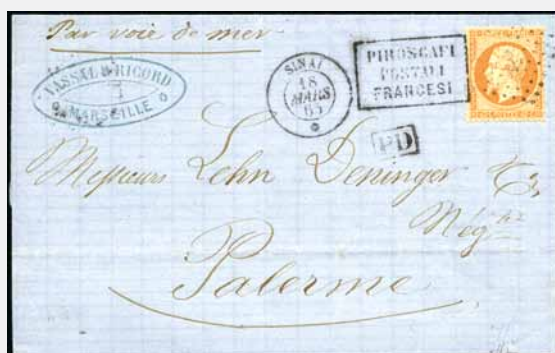 Par voie de mer
VASSAL & RICORD
MARSEILLE
SINAI
18
MARS
65
PIROSCAFI
POSTALI
FRANCESI
PD
Messieurs Lehn Deninger & Cie
Négts
Palerme